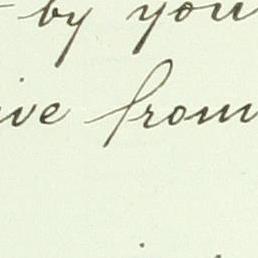 by you
ive from